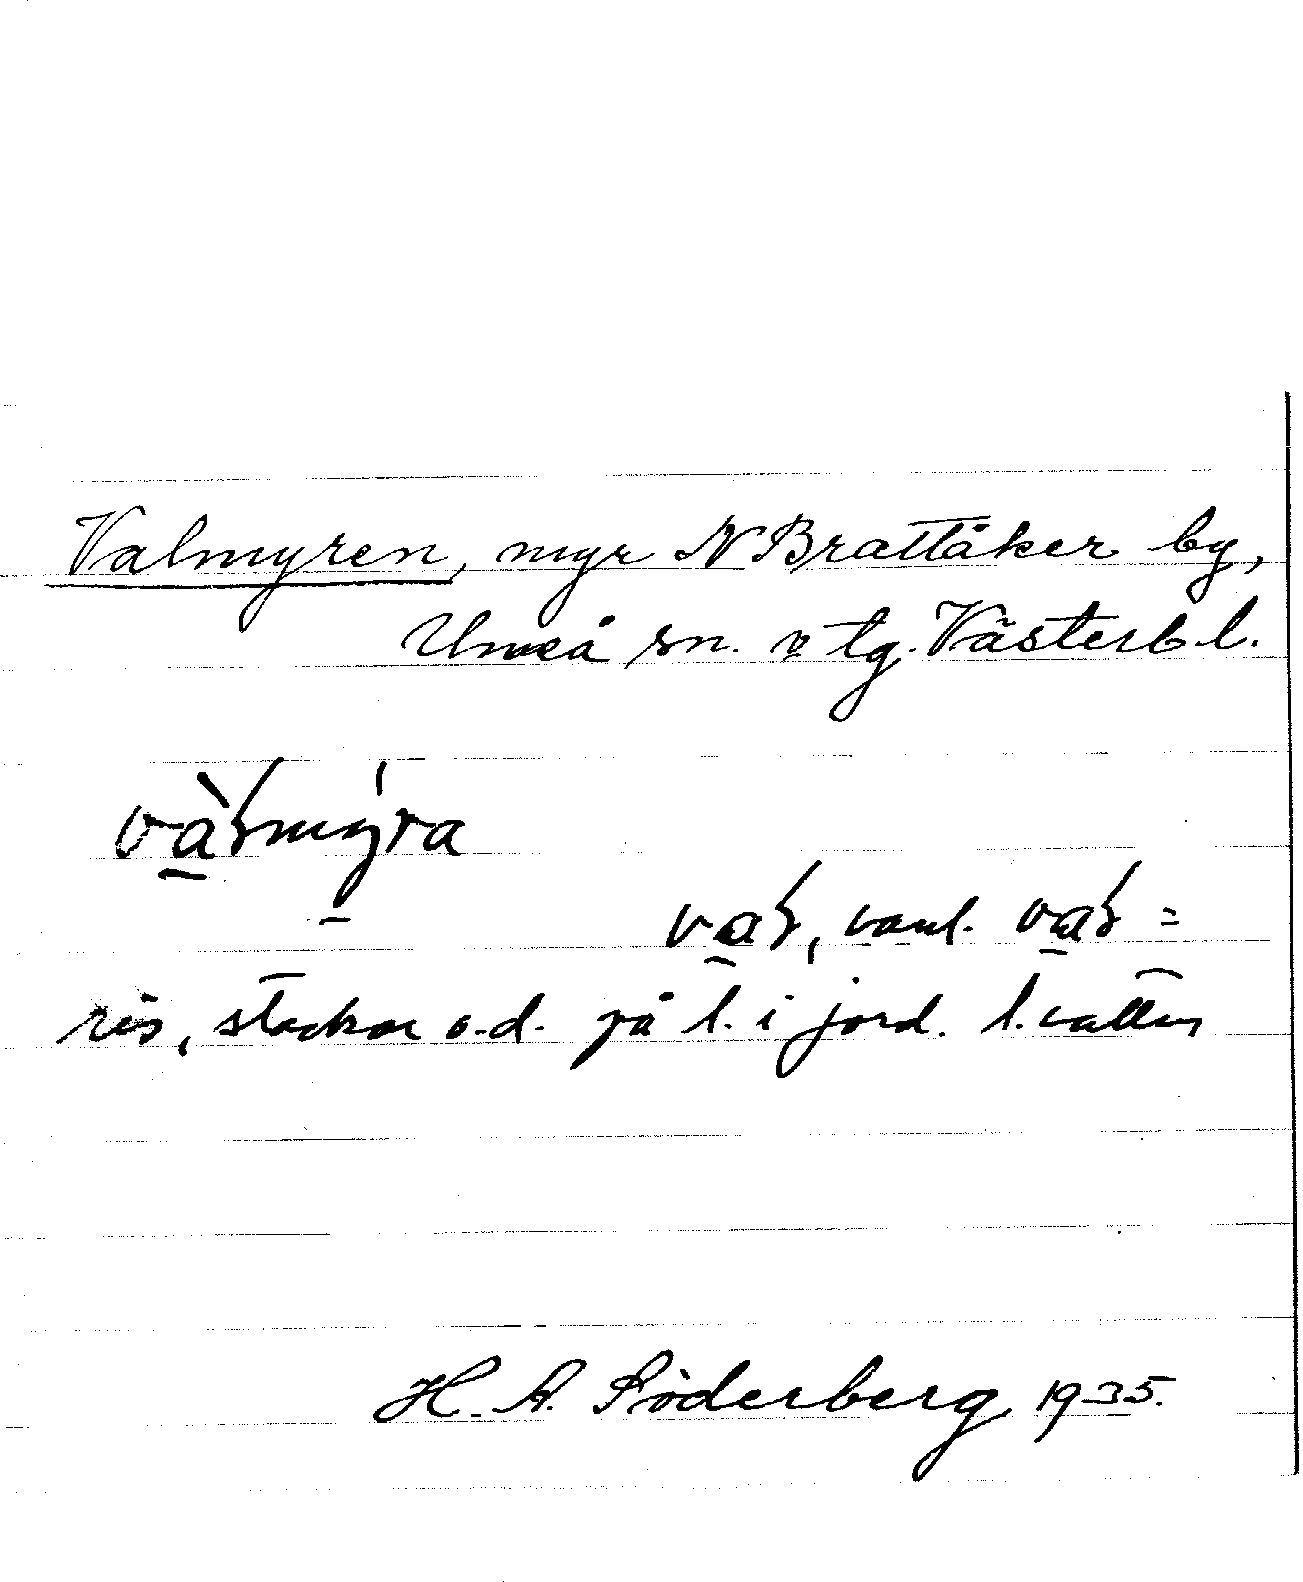 Valmyren, myr N Brattåker by,
Umeå sn. o tg. Västerb. l.
vàɫmýra
vaɫ, vanl. vaɫ =
ris, stockar o.d. på l. i jord. l. vatten
H. A. Söderberg 1935.